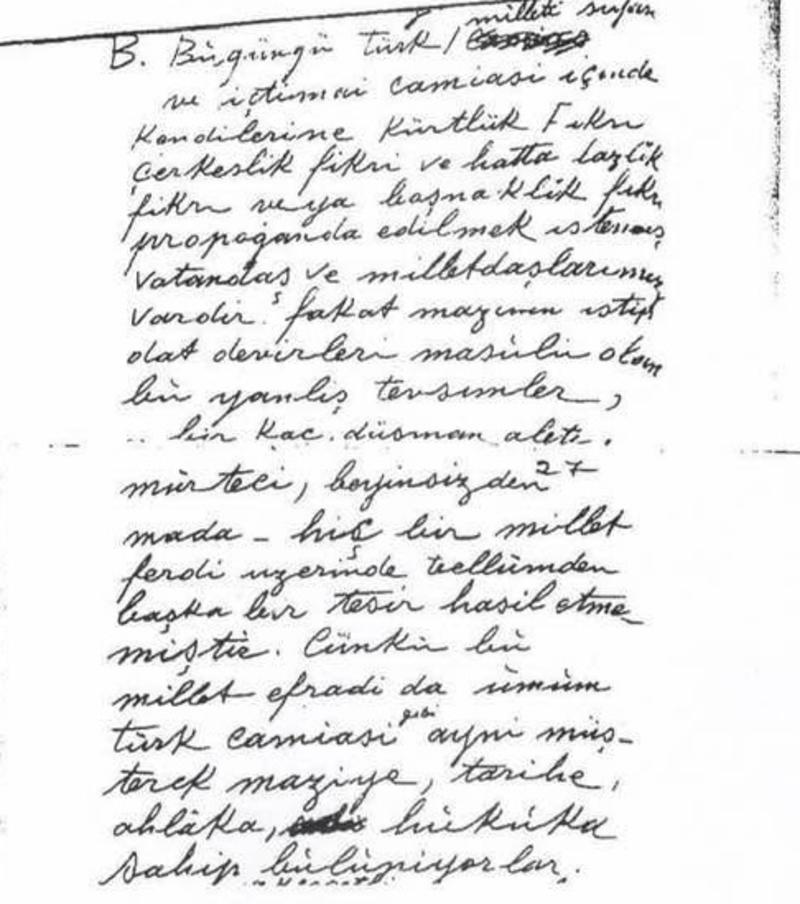 milleti siyasi
B. Bugüngü türk /
ve içtimai camiasi içinde
Kendilerine Kürtlük Fikri
Çerkeslik fikri ve hatta lazlik
fikri veya boşnaklik fikri
propoganda edilmek istenmiş
vatandaş ve milletdaşlarımız
vardir. fakat mazinin istip
dat devirleri masülü olan
bu yanliş tevsimler,
bir Kac düşman aleti,
mürteci, beyinsizden 27
mada - hiç bir millet
ferdi uzerinde teellümden
başka bir tesir hasil etme-
miştir. Cünkü bü
millet efradi da ümüm
türk camiasi gibi ayni müş-
terek maziye, tarihe,
ahlâka, hükúka
Sahip bülünüyorlar.